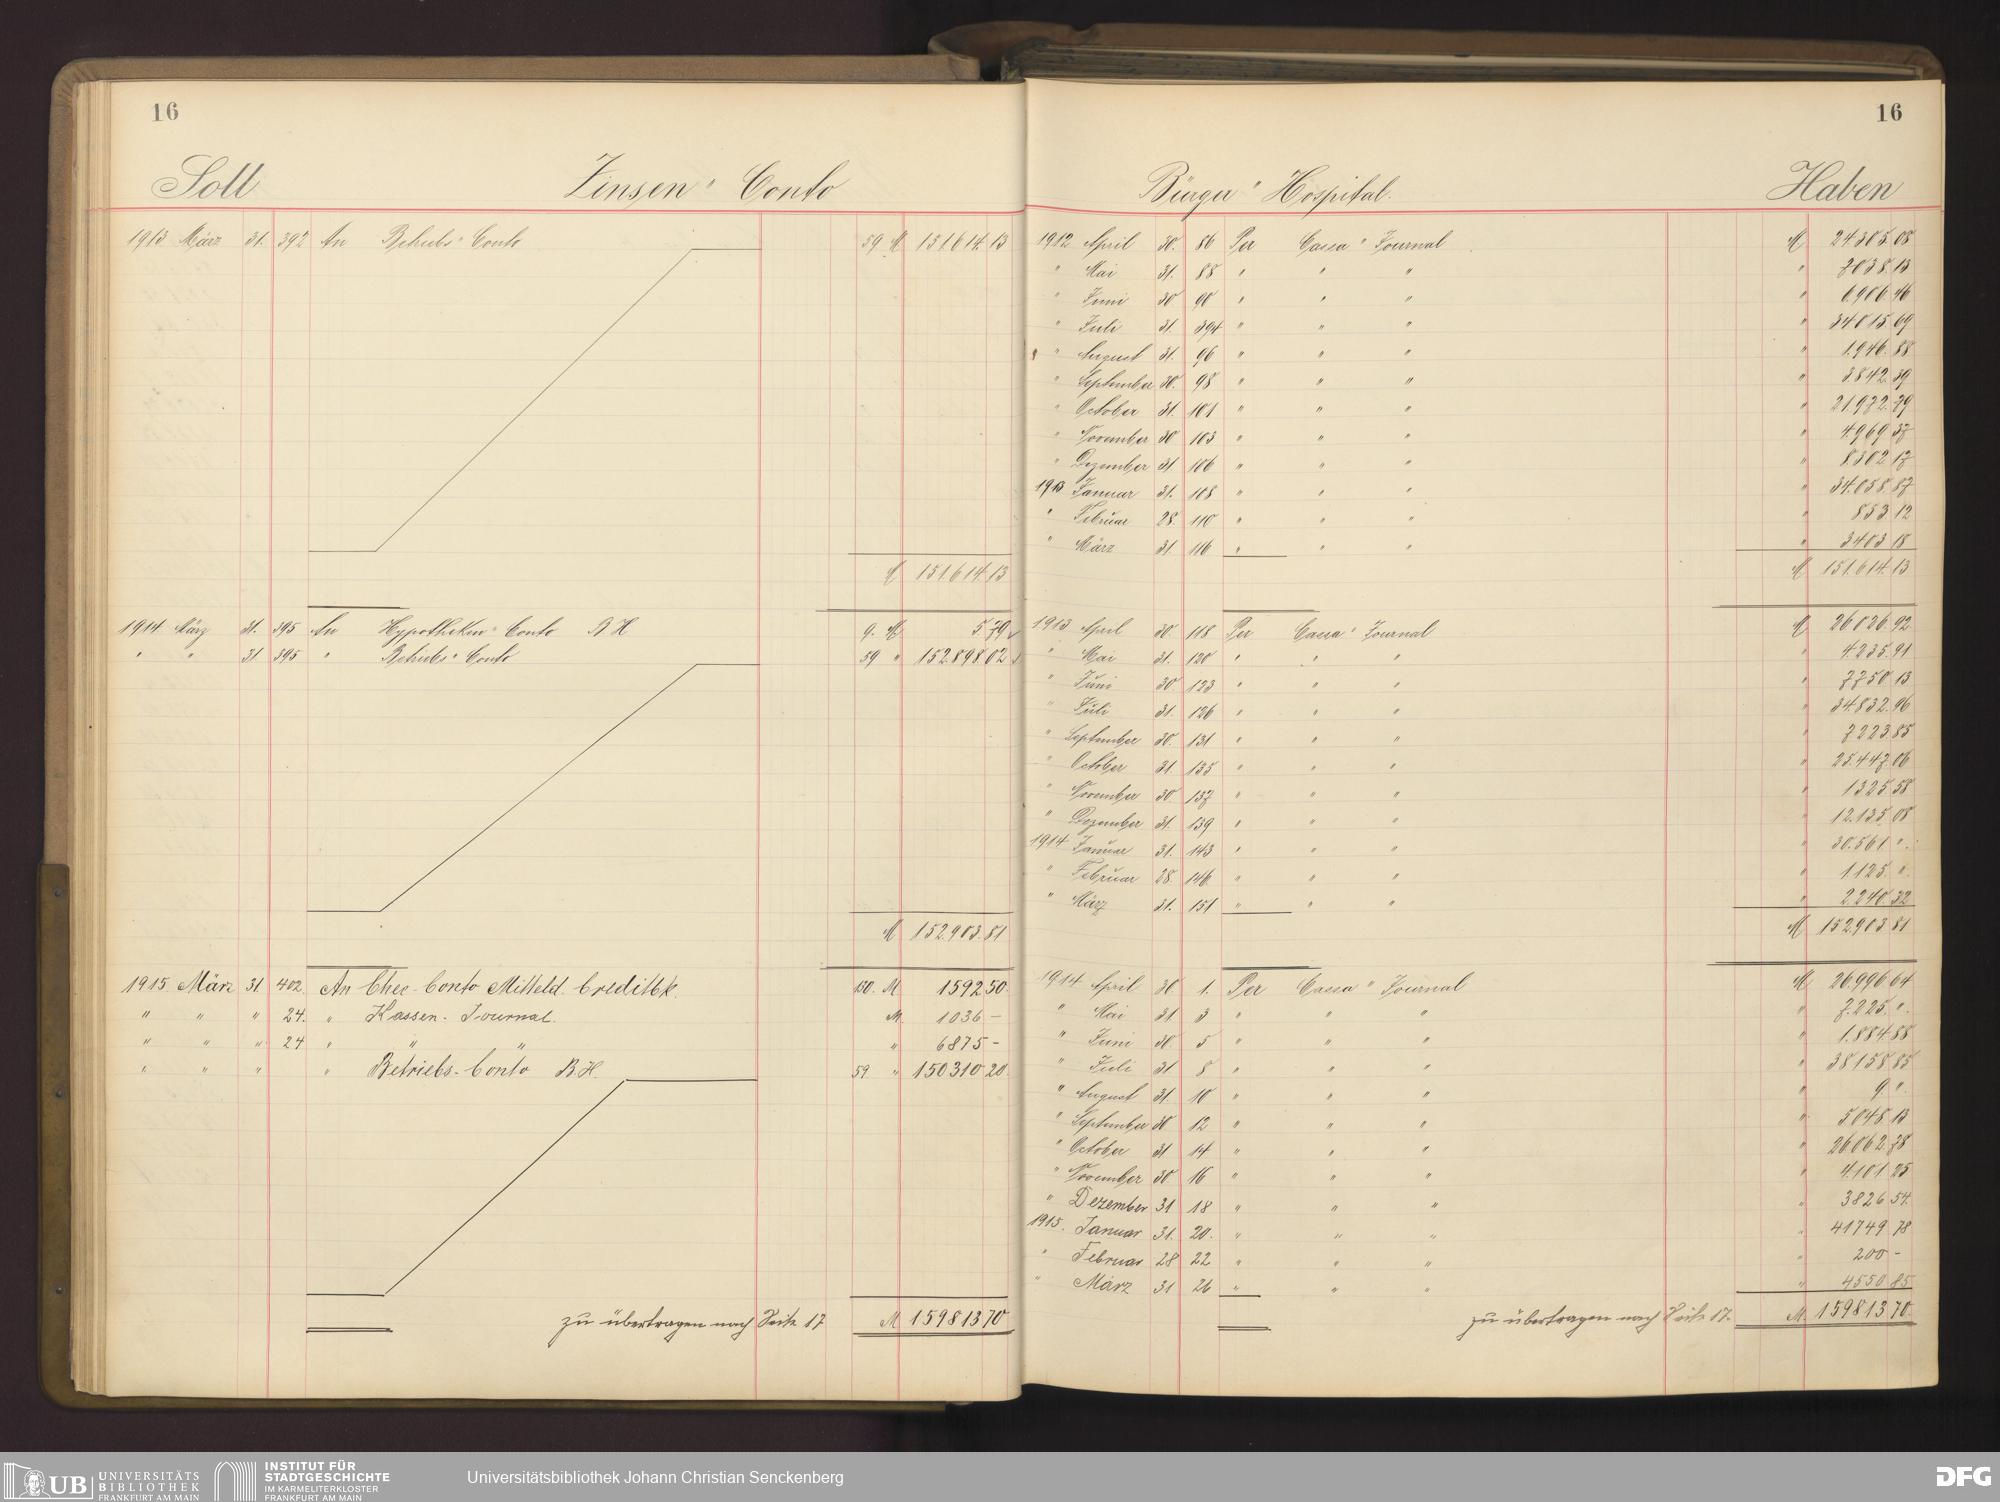 16
Soll Zinsen " Conto
1913 März 31. 392 An Betriebs " Conto 59 M 151.614.13
M 151.614.13
1914 März 31. 395 An Hypotheken " Conto B H 9. M 5.79
" " 31. 395 " Betriebs " Conto 59 " 152.898.02
M 152.903.81
1915 März 31. 402. An Chec-Conto Mitteld. Creditbk. 150. M 1592 50
" " " 24. " Kassen-Journal. M 1036 –
" " " 24 " " " " 6875 –
" " " " Betriebs-Conto B.H. 59 " 150310 20
zu übertragen nach Seite 17 M 159813 70
16
Bürger " Hospital. Haben
1912 April 30. 86 Per Cassa " Journal M 24.305.08
" Mai 31. 88 " " " " 7038.13
" Juni 30 90 " " " " 6.906.46
" Juli 31. 394 " " " " 34.015.69
" August 31. 96 " " " " 1.946.88
" September 30. 98 " " " " 3.842.39
" October 31. 101 " " " " 21.972.79
" November 30 103 " " " " 4.969.37
" Dezember 31 106 " " " " 8.302.17
1913 Januar 31. 108 " " " " 34.058.87
" Februar 28. 110 " " " " 853.12
" März 31 116 " " " " 3403 18
M 151.614.13
1913 April 30. 118 Per Cassa " Journal M 26.026.92
" Mai 31. 120 " " " " 4.235.91
" Juni 30. 123 " " " " 7750.13
" Juli 31. 126 " " " " 34.832.96
" September 30. 131 " " " " 7223.85
" October 31 135 " " " " 25.447.06
" November 30 137 " " " " 1325.58
" Dezember 31. 139 " " " " 12.135.08
1914 Januar 31. 143 " " " " 30.561 ".
" Februar 28. 146 " " " " 1125. ".
" März 31. 151 " " " " 2240.32
M 152.903 81
1914 April 30. 1. Per Cassa " Journal M 26.996 64
" Mai 31 3 " " " " 7.225. ".
" Juni 30. 5 " " " " 1.884.88
" Juli 31 8 " " " " 38158.85
" August 31. 10 " " " " 9 ".
" September 30 12 " " " " 5.048 13
" October 31 14 " " " " 26.062.78
" November 30 16 " " " " 4.101.25
" Dezember 31 18 " " " " 3826 54.
1915. Januar 31. 20. " " " " 41749 78
" Februar 28 22 " " " " 200 –
" März 31 26 " " " " 4550 85
zu übertragen nach Seite 17. M. 159813 70.
UB UNIVERSITÄTS
BIBLIOTHEK
FRANKFURT AM MAIN
INSTITUT FÜR
STADTGESCHICHTE
IM KARMELITERKLOSTER
FRANKFURT AM MAIN
Universitätsbibliothek Johann Christian Senckenberg
DFG